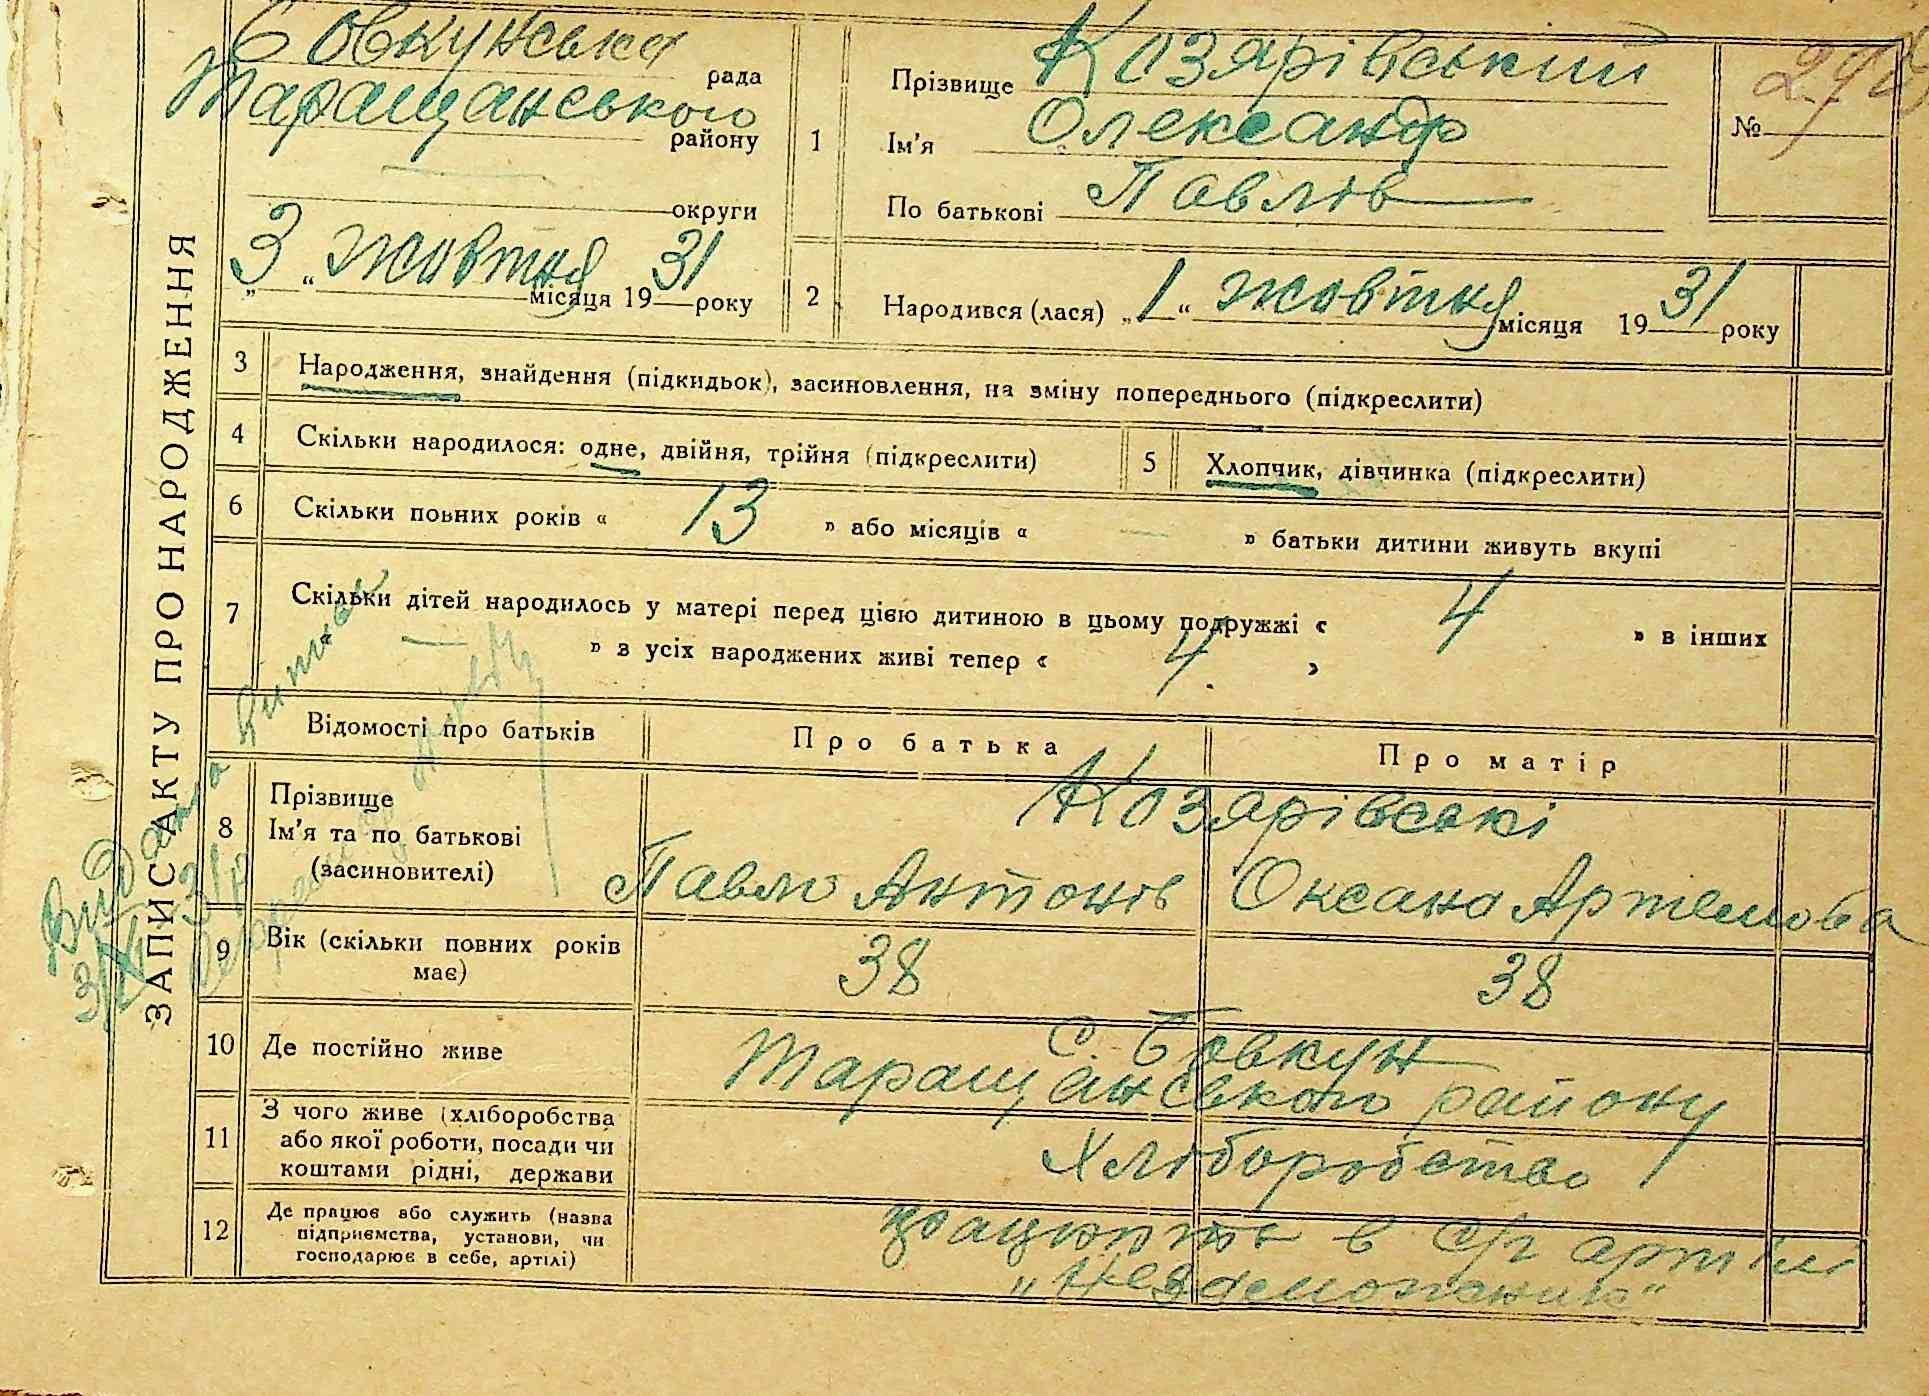 ЗАПИС АКТУ ПРО НАРОДЖЕННЯ
Бовкунська рада
Таращанського району
округи
„3“ жовтня місяця 1931 року
1
Прізвище Козярівський
Ім'я Олександр
По батькові Павлів
№
2
Народився (лася) „1“ жовтня місяця 1931 року
3 Народження, знайдення (підкидьок), засиновлення, на зміну попереднього (підкреслити)
4 Скільки народилося: одне, двійня, трійня (підкреслити)
5 Хлопчик, дівчинка (підкреслити)
6 Скільки повних років « 13 » або місяців « — » батьки дитини живуть вкупі
7 Скільки дітей народилось у матері перед цією дитиною в цьому подружжі « 4 » в інших
« — » з усіх народжених живі тепер « 4 »
Відомості про батьків Про батька Про матір
8 Прізвище
Ім'я та по батькові
(засиновителі)
Козярівські
Павло Антонів Оксана Артемова
9 Вік (скільки повних років
має)
38 38
10 Де постійно живе
с. Бовкун
Таращанського району
11 З чого живе (хліборобства
або якої роботи, посади чи
коштами рідні, держави
Хліборобство
12 Де працює або служить (назва
підприємства, установи, чи
господарює в себе, артілі)
працюють в с/г артілі
„Незаможник“
Видана
Витяг